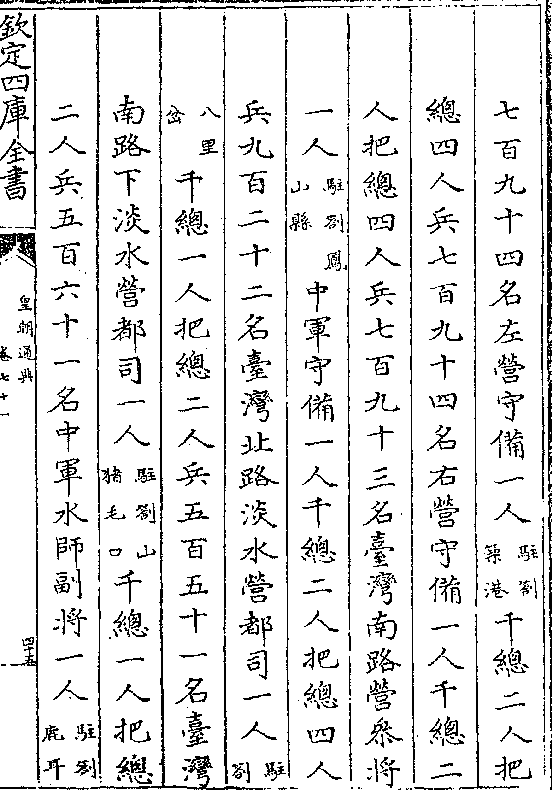 七百九十四名左營守備一人駐劄築港千總二人把
總四人兵七百九十四名右營守備一人千總二
人把總四人兵七百九十三名臺灣南路營叅將
一人駐劄鳳山縣中軍守備一人千總二人把總四人
兵九百二十二名臺灣北路淡水營都司一人駐劄
八里岔千總一人把總二人兵五百五十一名臺灣
南路下淡水營都司一人駐劄山猪毛口千總一人把總
二人兵五百六十一名中軍水師副將一人駐劄鹿耳
欽定四庫全書
皇朝通典
卷七十一
四十五